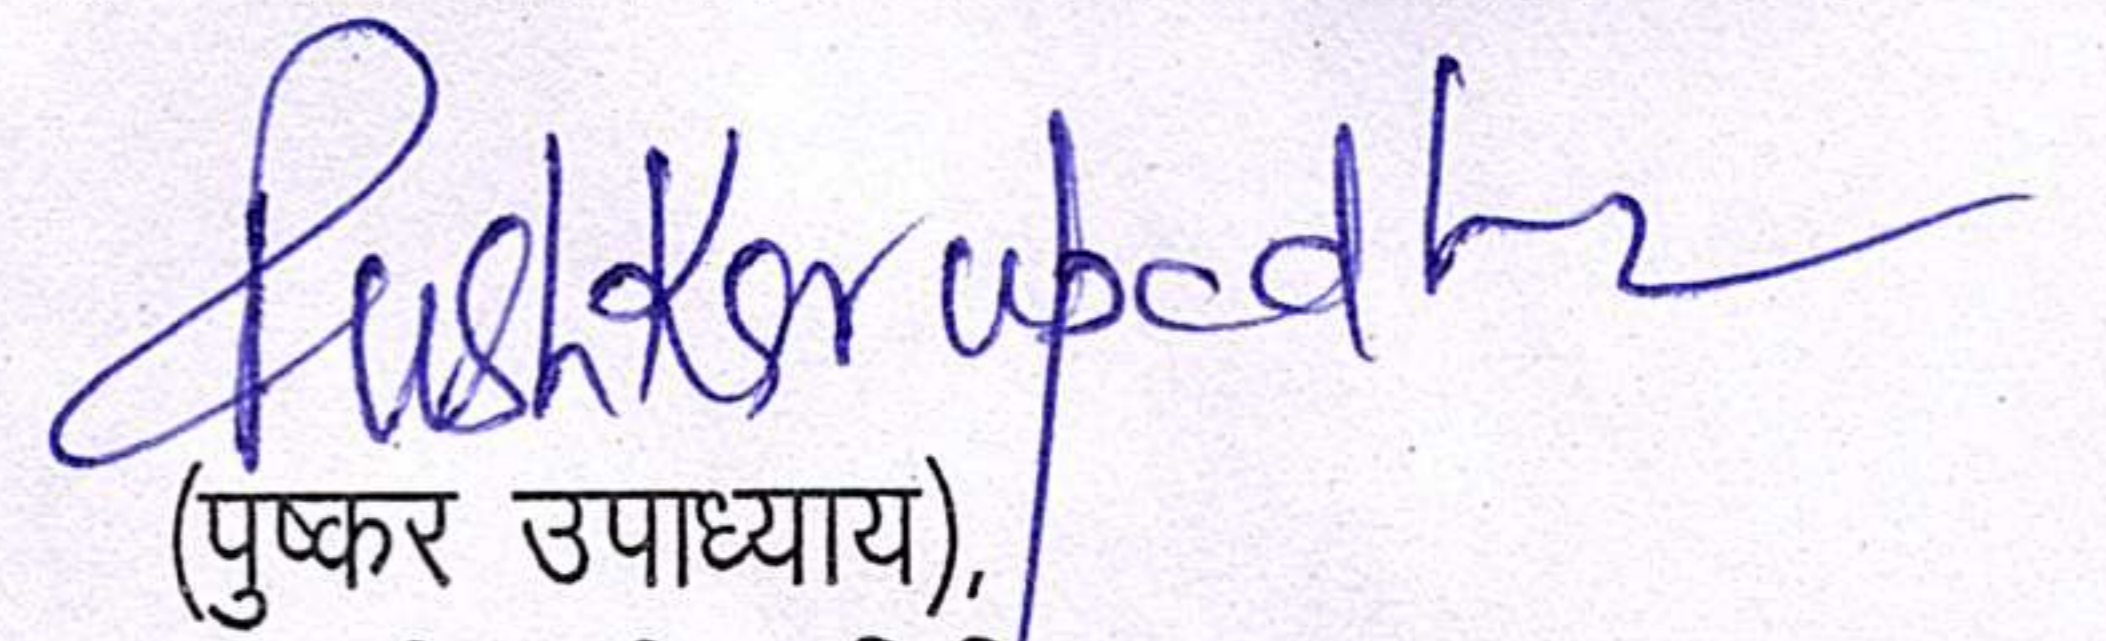 Pushkar upadh
(पुष्कर उपाध्याय),